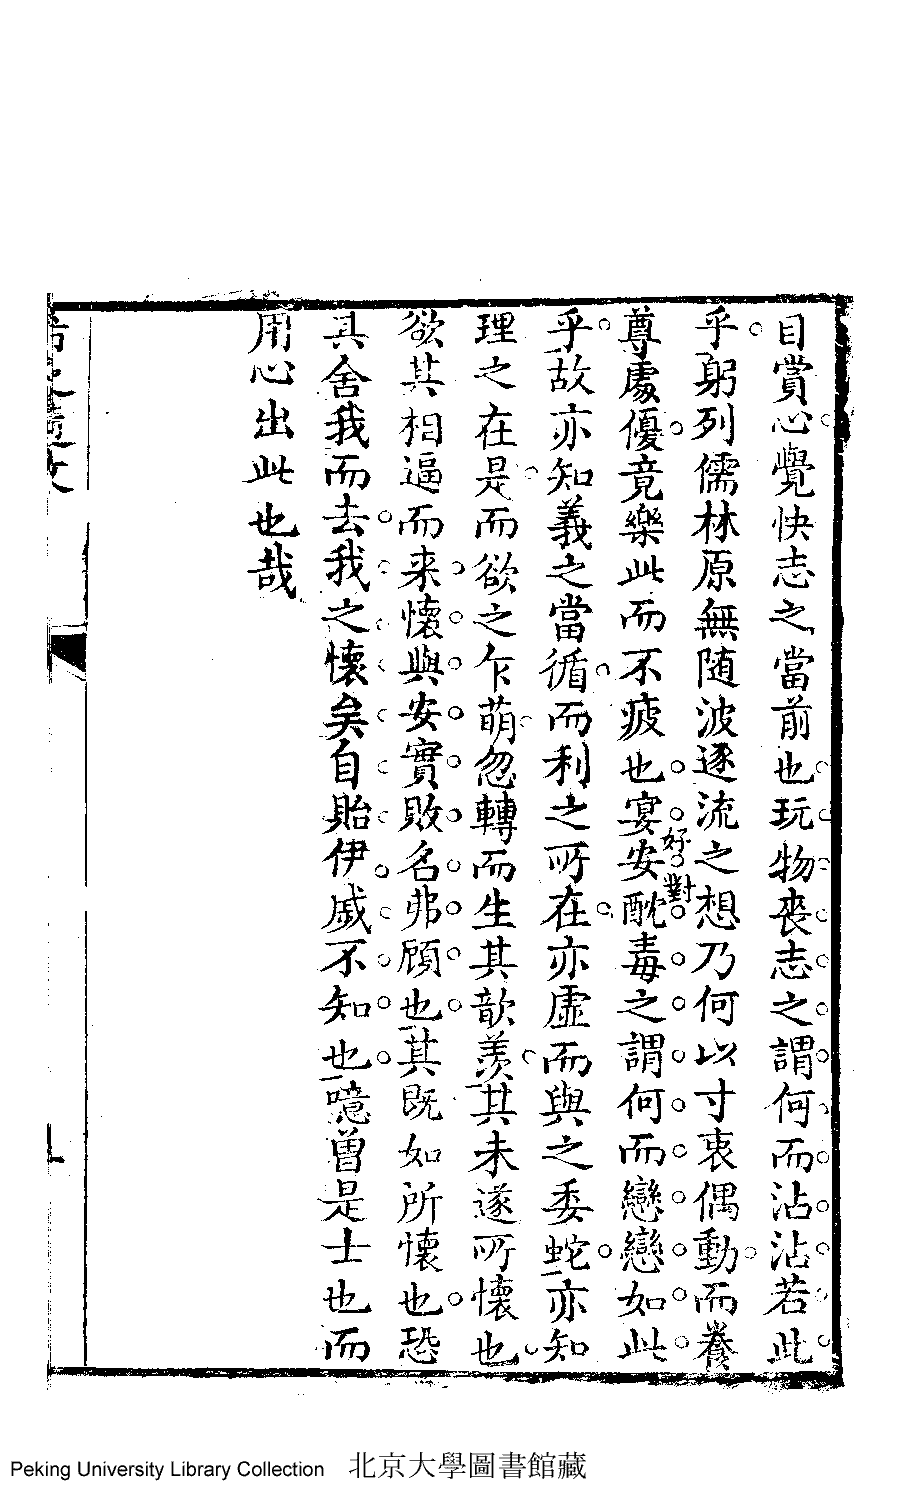 目賞心覺快志之當前也玩物喪志之謂何而沾沾若此
乎躬列儒林原無随波逐流之想乃何以寸衷偶動而養
好對
尊處優竟樂此而不疲也宴安酖毒之謂何而戀戀如此
乎故亦知義之當循而利之所在亦虛而與之委蛇亦知
理之在是而欲之乍萌忽轉而生其歆羨其未遂所懷也
欲其相逼而来懷與安實敗名弗顧也其既如所懷也恐
其舍我而去我之懷矣自貽伊戚不知也噫曽是士也而
用心出此也哉
Peking University Library Collection 北京大學圖書館藏